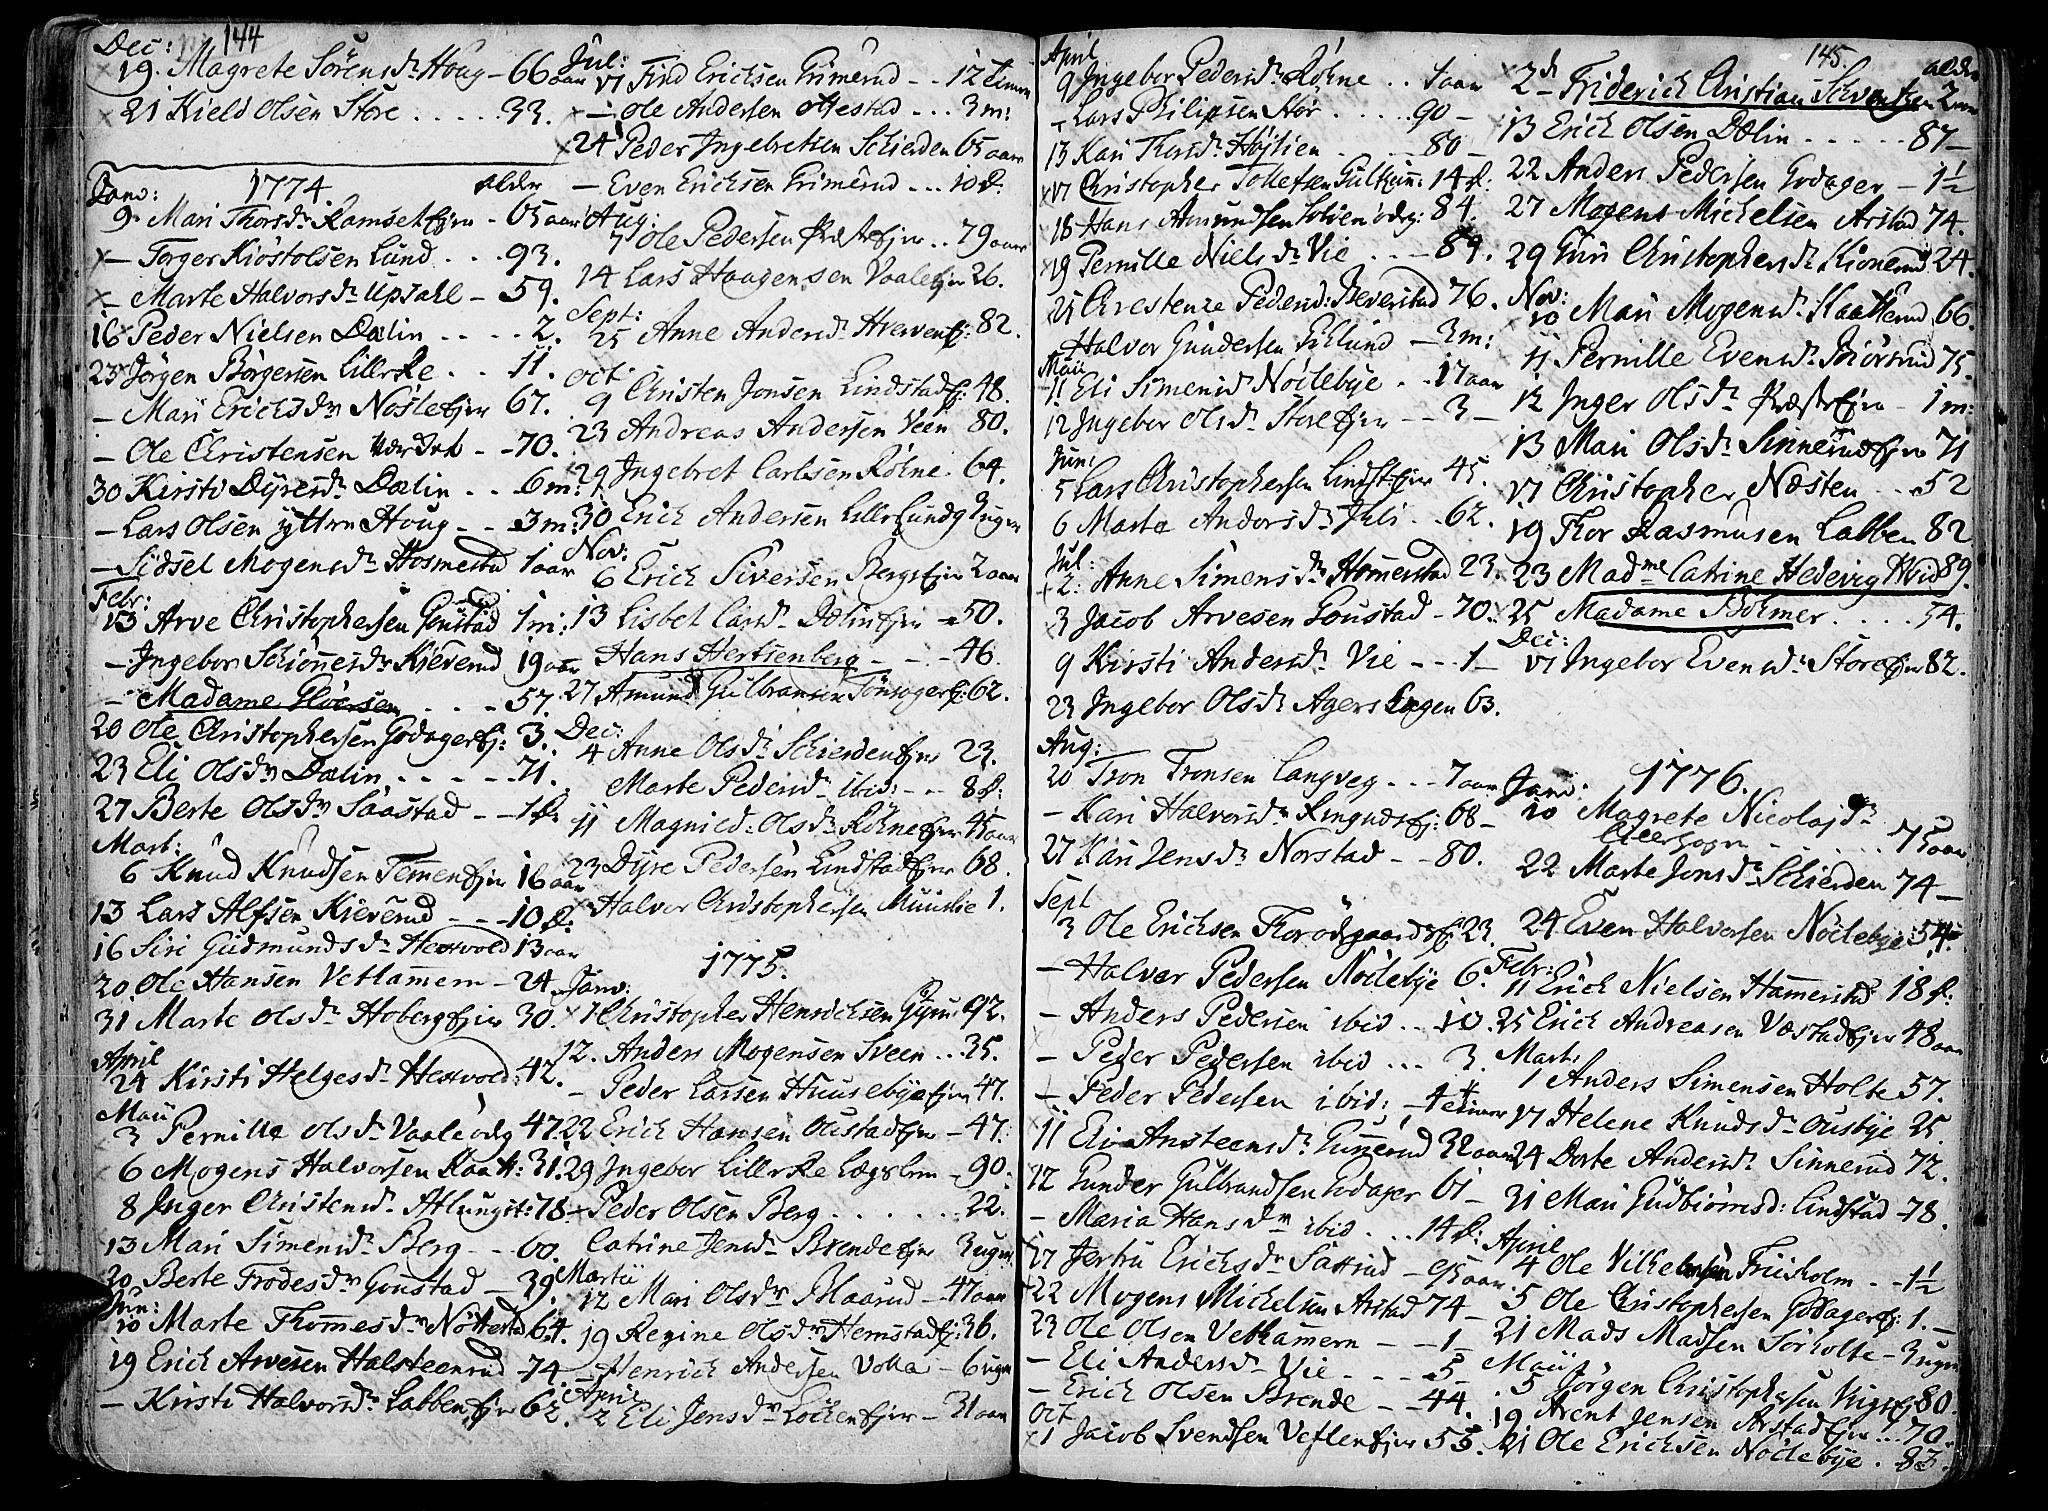 144
Dec:
19. Magrete Sörensdr Houg - 66 aar
21 Kield Olsen Store ..... 33.
1774.
Janv: alder
9. Mari Thorsdr Ramset Ejer - 65 aar
- Torger Kiöstolsen Lund ... 93.
- Marte Halvorsdr Updahl - 59.
16 Peder Nielsen Dælin .... 2.
23 Jörgen Börgersen Lillrke .. 11.
- Mari Erichsdr Nösleejer 67.
- Ole Christensen - 70.
30 Kirsti Dyresdr Dælin .. 6 m:
- Lars Olsen yttre Houg - - 3 m:
- Sidsel Mogensdr Hosmestad 1 aar
Febr:
13 Arve Christophersen Goustad 1 m:
- Ingebor Schiönnesdr Kieverud 19 aar
- Madame Glöersen ... 57.
20 Ole Christophersen Godager Ej: 3.
23 Eli Olsdr Dælin ..... 71.
27 Berte Olsdr Saastad - - 1 d:
Mart:
6 Knud Knudsen Temmenejer 16 aar
13 Lars Alfsen Kieverud - - - 10 d:
16 Siri Gudmundsdr Hestvold 13 aar
20 Ole Hansen Vetlammern - 24.
31 Marte Olsdr Hoberg Ejer 30.
April
24 Kirsti Helgesdr Hestvold: 42.
Maii
3 Pernilla Olsdr Vaale ödg 47.
6 Mogens Halvorsen Kaatt: 31.
8 Inger Christensdr Atlungst: 78
13 Mari Simensdr Berg - - 60.
20 Berte Frodesdr Goustad - 39.
Jun:
10 Marte Thommesdr Nöttestad 64.
19 Erich Arvesen Halsteenrud - 74
- Kirsti Halvorsdr Labben Ejer 62.
Jul:
17 Find Erichsen Grimerud - - 12 timer
- Ole Andersen Aastad ... 3 m:
24 Peder Ingebretsen Schierden 65 aar
- Even Erichsen Grimerud ... 10 d:
Aug:
7 Ole Pedersen Præste Ejer .. 79 aar
14 Lars Haagensen Vaale Ejer 26.
Sept:
25 Anne Andersdr Hverven Ej: 82.
Oct:
9 Christen Jonsen Lindstad Ej: 48.
23 Andreas Andersen Veen 80.
29 Ingebret Carlsen Röhne. 64.
30 Erich Andersen Lille Lund 9 uger
Nov:
6 Erich Siversen Bergs Ejer 2 aar
13 Lisbet Larsdr Dælin Ejer - 50.
- Hans Hertzenberg - - - 46.
27 Amund Gulbransen Tönsager Ej: 62.
Dec:
4 Anne Olsdr Schierden Ejer 23.
Marte Pedersdr ibid: - - 8 d:
11 Magnild: Olsdr Röhne Ejer 45 aar
23 Dyre Pedersen Lindstad Ejer 68.
Halvor Christophersen Muuslie 1.
1775.
Janv:
1 Christopher Henrichsen 92.
12. Anders Mogensen Sveen ... 35.
- Peder Larsen Huusebye Ejer 47.
22 Erich Hansen Oustad Ejer - 47.
29 Ingebor Lillrke Lægslem - 90.
- Peder Olsen Berg ...... 22.
Catrine Jensdr Brende Ejer 3 uger
Martii
12 Mari Olsdr Blaarud - 47 aar
19 Regine Olsdr Hemstad Ej: 36.
- Henrich Andersen Volla - 6 uger
April
2 Eli Jensdr Locken Ejer - 31 aar
145.
April
9 Ingebor Pedersdr Röhne .. 1 aar
- Lars Philipsen Stor ..... 90 -
13 Kari Thorsdr Höjlien ... 80 -
17 Christopher Tollefsen Gulhuus: 14 d:
18 Hans Amundsen Solöen ödg: 84.
19 Pernille Nielsdr Vie ... - 89.
25 Chrestense Pedersd: Beverstad 76.
- Halvor Gundersen Eiklund - 3 m:
Maii
11 Eli Simensdr Nöclebye .. 17 aar
12 Ingebor Olsdr Store Ejer - - 3 -
Jun:
5 Lars Christophersen Lindst Ejer 45.
6 Marte Andorsdr Juli .. 62.
Jul:
2: Anne Simensdr Hommerstad 23.
3 Jacob Arvesen Goustad - 70.
9 Kirsti Andersdr Vie - - - 1 -
23 Ingebor Olsdr Agers Engen 63.
Aug:
20 Tron Tronsen Langveg ... 7 aar
- Kari Halvorsdr Ringnds Ej: 68 -
27 Kari Jensdr Norstad - - 80.
Sept
3 Ole Erichsen Horödegaard Ej: 23.
- Halvor Pedersen Nöclebye 6.
- Anders Pedersen ibid .. 10.
- Peder Pedersen ibid ... 3.
- Peder Pedersen ibid; - 4 timer
11 Eli Ansteensdr Gunnerud 32 aar
12 Gunder Gulbrandsen Godager 61 -
- Maria Hansdr ibid ... 14 d:
17 Jertru Erichsdr Sastrud - 95 aar
22 Mogens Michelsen Arstad 74 -
23 Ole Olsen Vetkammern - - 1 -
- Eli Andersdr Vie .... 5 -
- Erich Olsen Brende - - 44.
Oct
1 Jacob Svendsen Veflen Ejer 55.
alder
2d - Friderich Christian Schventzen 2 aar
13 Erich Olsen Dælin ..... 87 -
22 Anders Pedersen Godager - 1½
27 Mogens Michelsen Arstad 74.
29 Guri Christophersdr Kionerud 24.
Nov:
10 Mari Mogensdr Kaatterud 66.
11 Pernille Evensdr Biörerud 75.
12 Inger Olsdr Præste Ejer - 1 m:
13 Mari Olsdr Sinnerud Ejer 71
17 Christopher Næsten ... 52
19 Thor Rasmusen Labben 82
23 Madme Catrine Hedevig Wid 89.
25 Madame Böhmer .... 54.
Dec:
17 Ingebor Evensdr Store Ejer 82.
1776.
Janv:
10 Magrete Nicolajdr
....... 75 aar
22 Marte Jonsdr Schierden 74 -
24 Even Halvorsen Nöclebye 54
Febr:
11 Erich Nielsen Hammerstad 18 d:
25 Erich Andreasen Væstad Ejer 48 aar
Mart:
1 Anders Simensen Holte 57.
17 Helene Knudsdr Ousbye 25.
24 Dorte Andersdr Sinnerud 72.
31 Mari Gudbiörnsd: Lindstad - 78.
April
4 Ole Vilhelmsen Friisholm - - 1½
5 Ole Christophersen Godager Ej: 1. -
21 Mads Madsen Sörholte - 3 uger
Maii
5 Jörgen Christophersen 80.
19 Arent Jensen Arstad Ejer ... 70.
21 Ole Erichsen Nöclebye . 83.